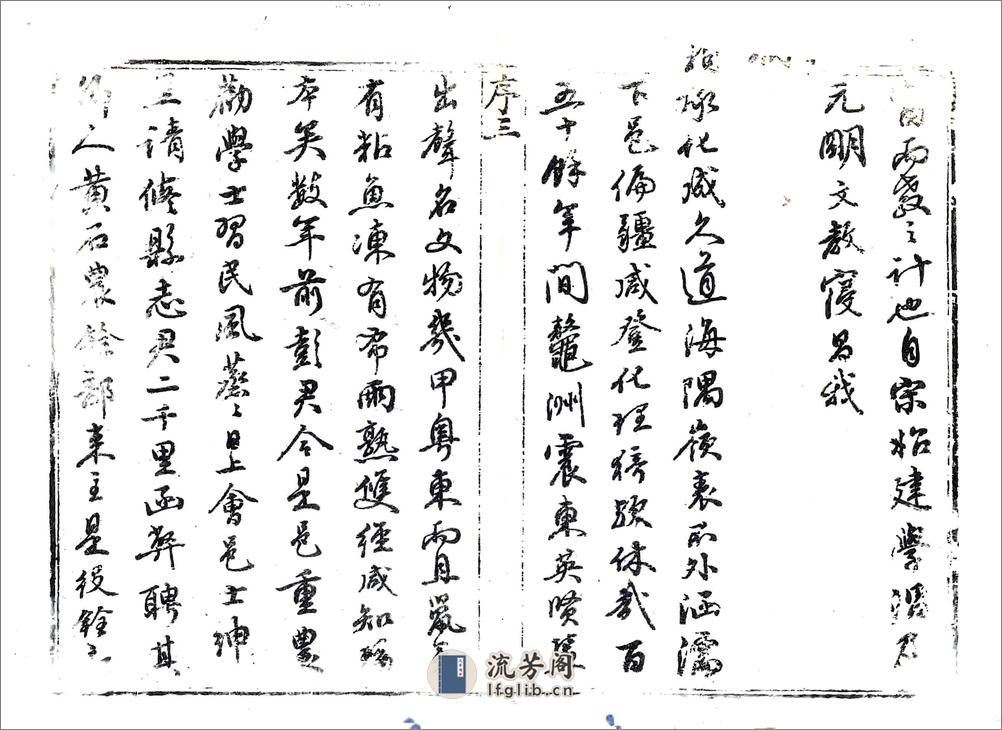 而教之計也自宋始建學
元明文教寖昌我
承化咸久道海隅嶺表罔外涵濡
下邑偏疆咸登化理猗歟休哉百
五十餘年間鼇洲震東英賢
序三
出聲名文物幾甲粵東而且
有粘魚凍有希爾熟雙經咸知
本矣數年前彭君令是邑重農
勸學士習民風蒸蒸日上會邑士紳
三請修縣志君二千里函幣聘其
鄉人黃石農
部來主是役
流芳阁
lfglib.cn